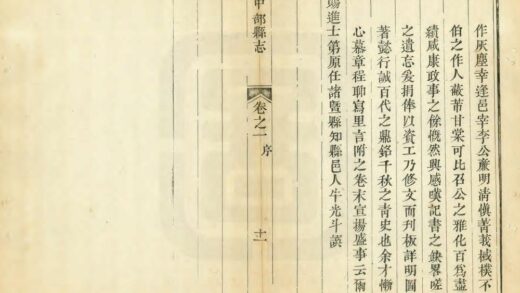 作灰塵幸逢邑宰李公廉明清愼菁莪棫樸不
伯之作人蔽芾甘棠可比召公之雅化百爲盡
績咸康政事之餘慨然興感嘆記書之缺畧嗟
之遺忘爰捐俸以資工乃修文而刋板詳明圖
著懿行誠百代之鼎銘千秋之靑史也余才慚
心慕章程聊寫里言附之卷末宣揚盛事云爾
賜進士第原任諸曁縣知縣邑人牛光斗譔
中部縣志
卷之一
序
十一